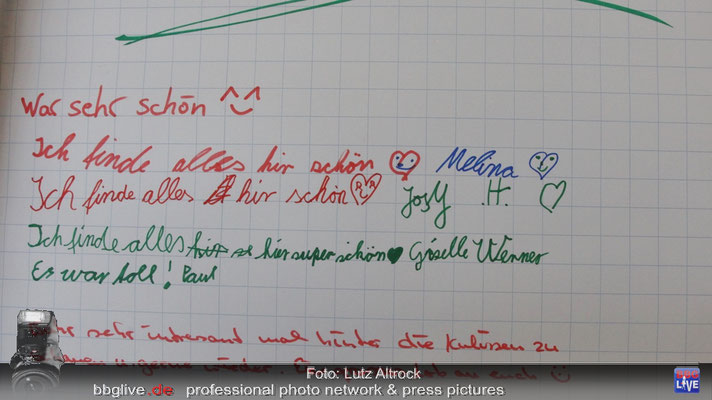 War sehr schön ^‿^
Ich finde alles hir schön Melina
Ich finde alles hir schön JosY .H.
Ich finde alles hir hier super schön Giselle Wenner
Es war toll! Paul
sehr intresant mal hinter die Kulissen zu
gerne wieder. an euch
Foto: Lutz Altrock
bbglive.de professional photo network & press pictures
BBG LIVE